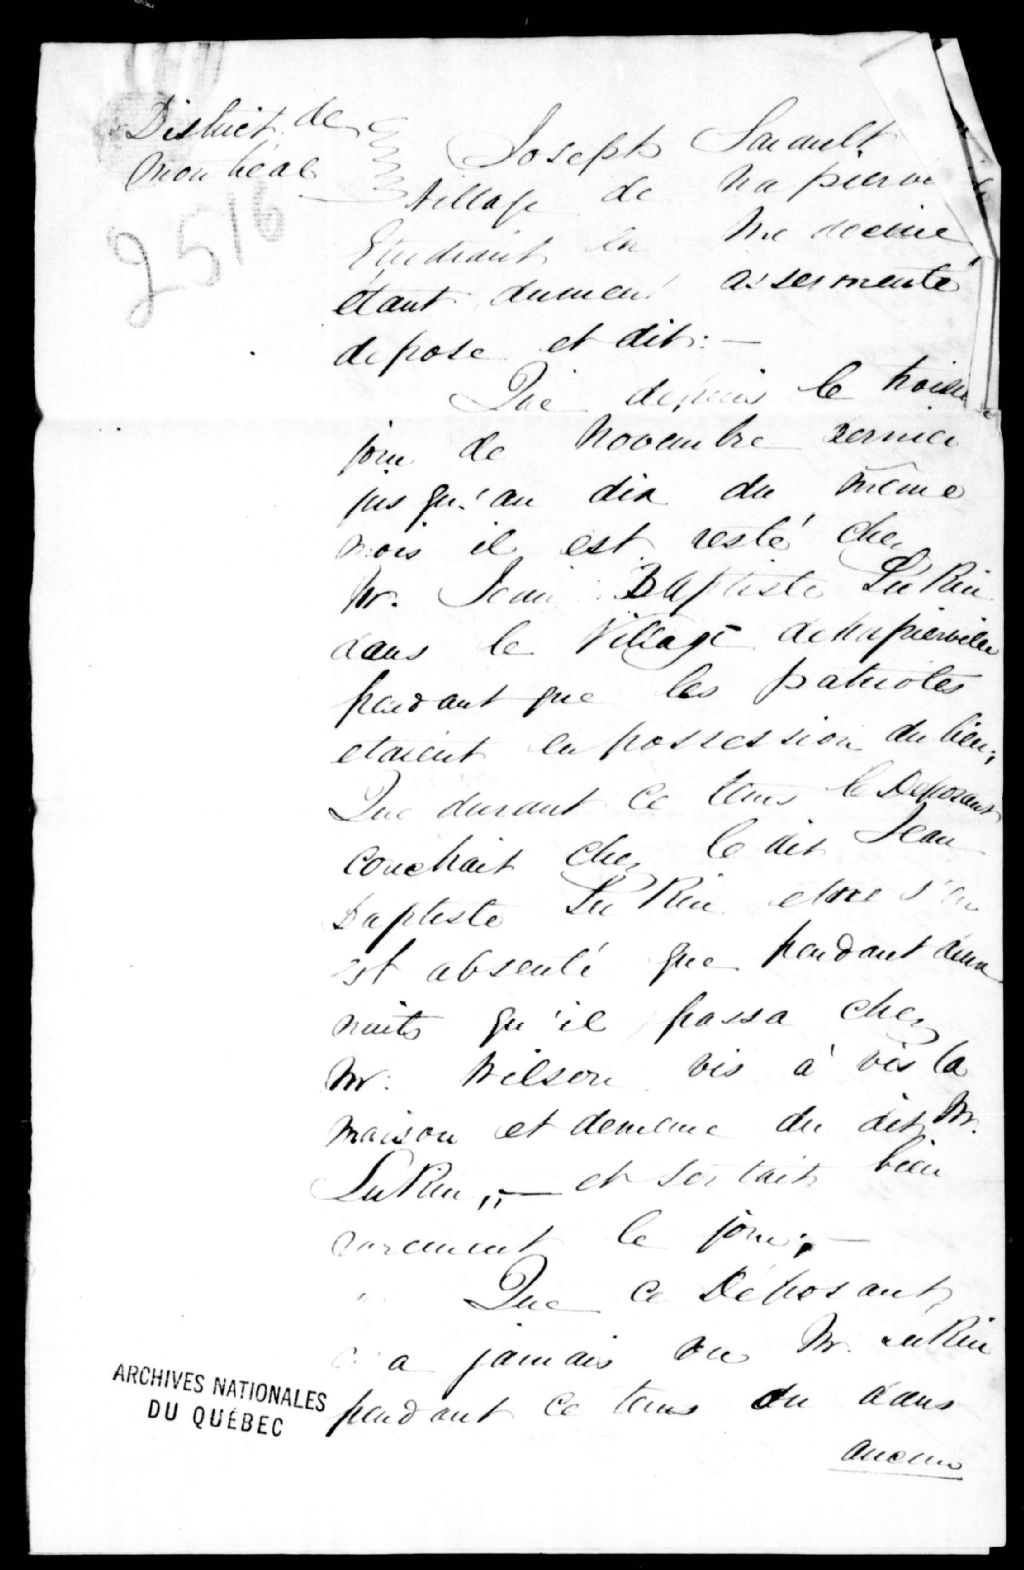 District de
Montréal
2516
Joseph
Village de Napiervi
Etudiant en Medecine
étant dument assermenté
depose et dit: —
Que depuis le troisie
jour de Novembre dernier
jusqu'au dix du même
mois il est resté chez
Mr. Jean Baptiste LuKin
dans le Village de Napierville
pendant que les patriotes
etaient en possession du lieu;
Que durant ce tems le Deposant
couchait chez le dit Jean
Baptiste LuKin et ne s'en
est absenté que pendant deux
nuits qu'il passa chez
Mr. Wilson vis à vis la
maison et demeure du dit Mr.
LuKin, — et sortait bien
rarement le jour; —
Que ce Déposant
n'a jamais vu Mr. LuKin
pendant ce tems du dans
aucune
ARCHIVES NATIONALES
DU QUÉBEC